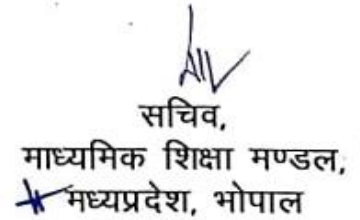 सचिव,
माध्यमिक शिक्षा मण्डल,
मध्यप्रदेश, भोपाल